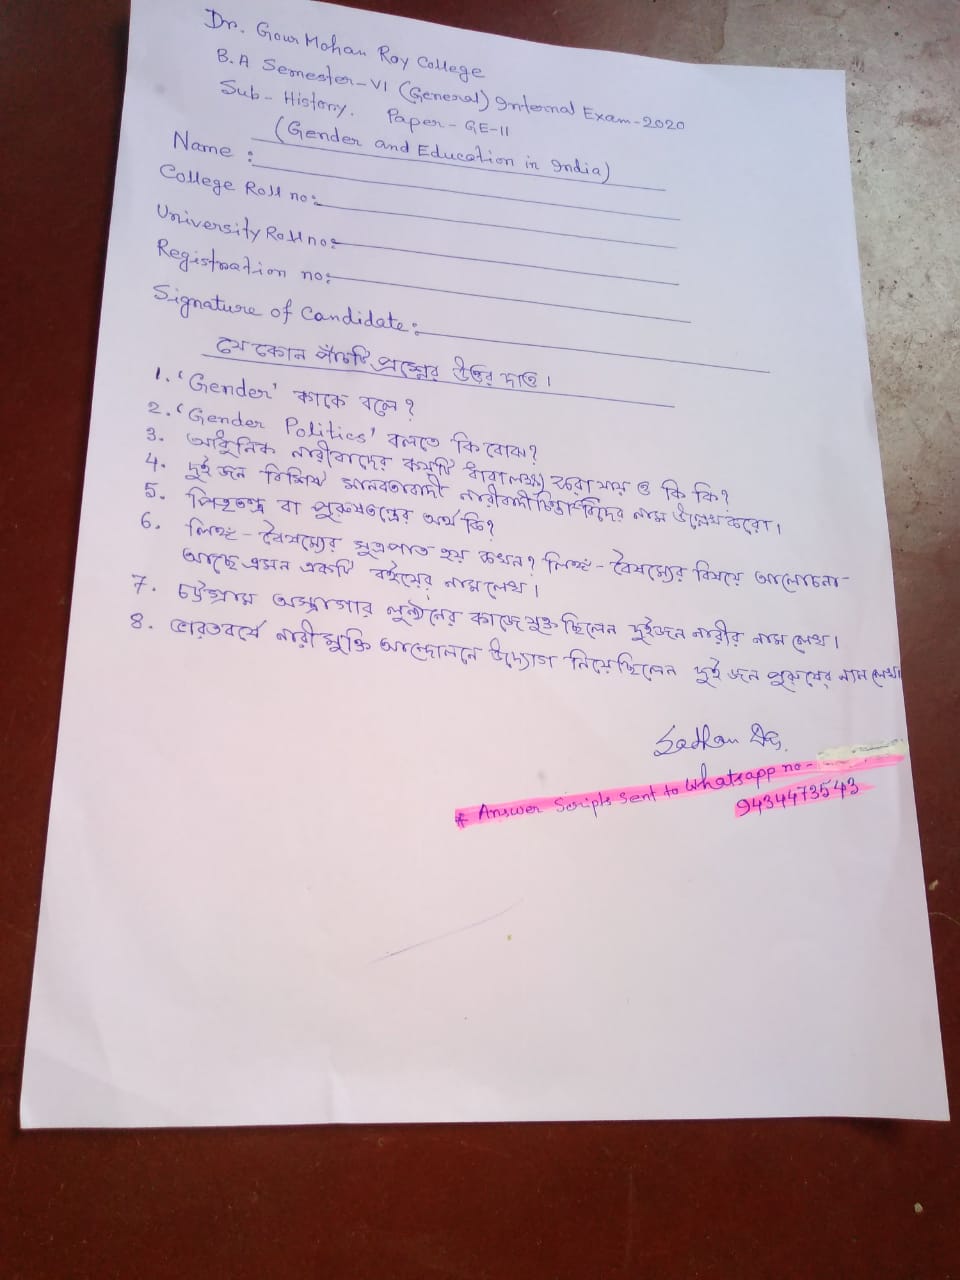 Dr. Gour Mohan Roy College
B.A Semester-VI (General) Internal Exam-2020
Sub- History. Paper- GE-II
(Gender and Education in India)
Name :
College Roll no:
University Roll no:
Registration no:
Signature of Candidate:
যে কোন পাঁচটি প্রশ্নের উত্তর দাও।
1. 'Gender' কাকে বলে?
2. 'Gender Politics' বলতে কি বোঝ?
3. আধুনিক নারীবাদের কয়টি ধারা লক্ষ্য করা যায় ও কি কি?
4. দুই জন বিশিষ্ট মানবতাবাদী নারীবাদী চিন্তাবিদের নাম উল্লেখ করো।
5. পিতৃতন্ত্র বা পুরুষতন্ত্রের অর্থ কি?
6. লিঙ্গ-বৈষম্যের সুত্রপাত হয় কখন? লিঙ্গ-বৈষম্যের বিষয়ে আলোচনা-
আছে এমন একটি বইয়ের নাম লেখ।
7. চট্টগ্রাম অস্ত্রাগার লুন্ঠনের কাজে যুক্ত ছিলেন দুইজন নারীর নাম লেখ।
8. ভারতবর্ষে নারীমুক্তি আন্দোলনে উদ্যোগ নিয়েছিলেন দুই জন পুরুষের নাম লেখ।
* Answer Scripts sent to Whatsapp no-
9434473543